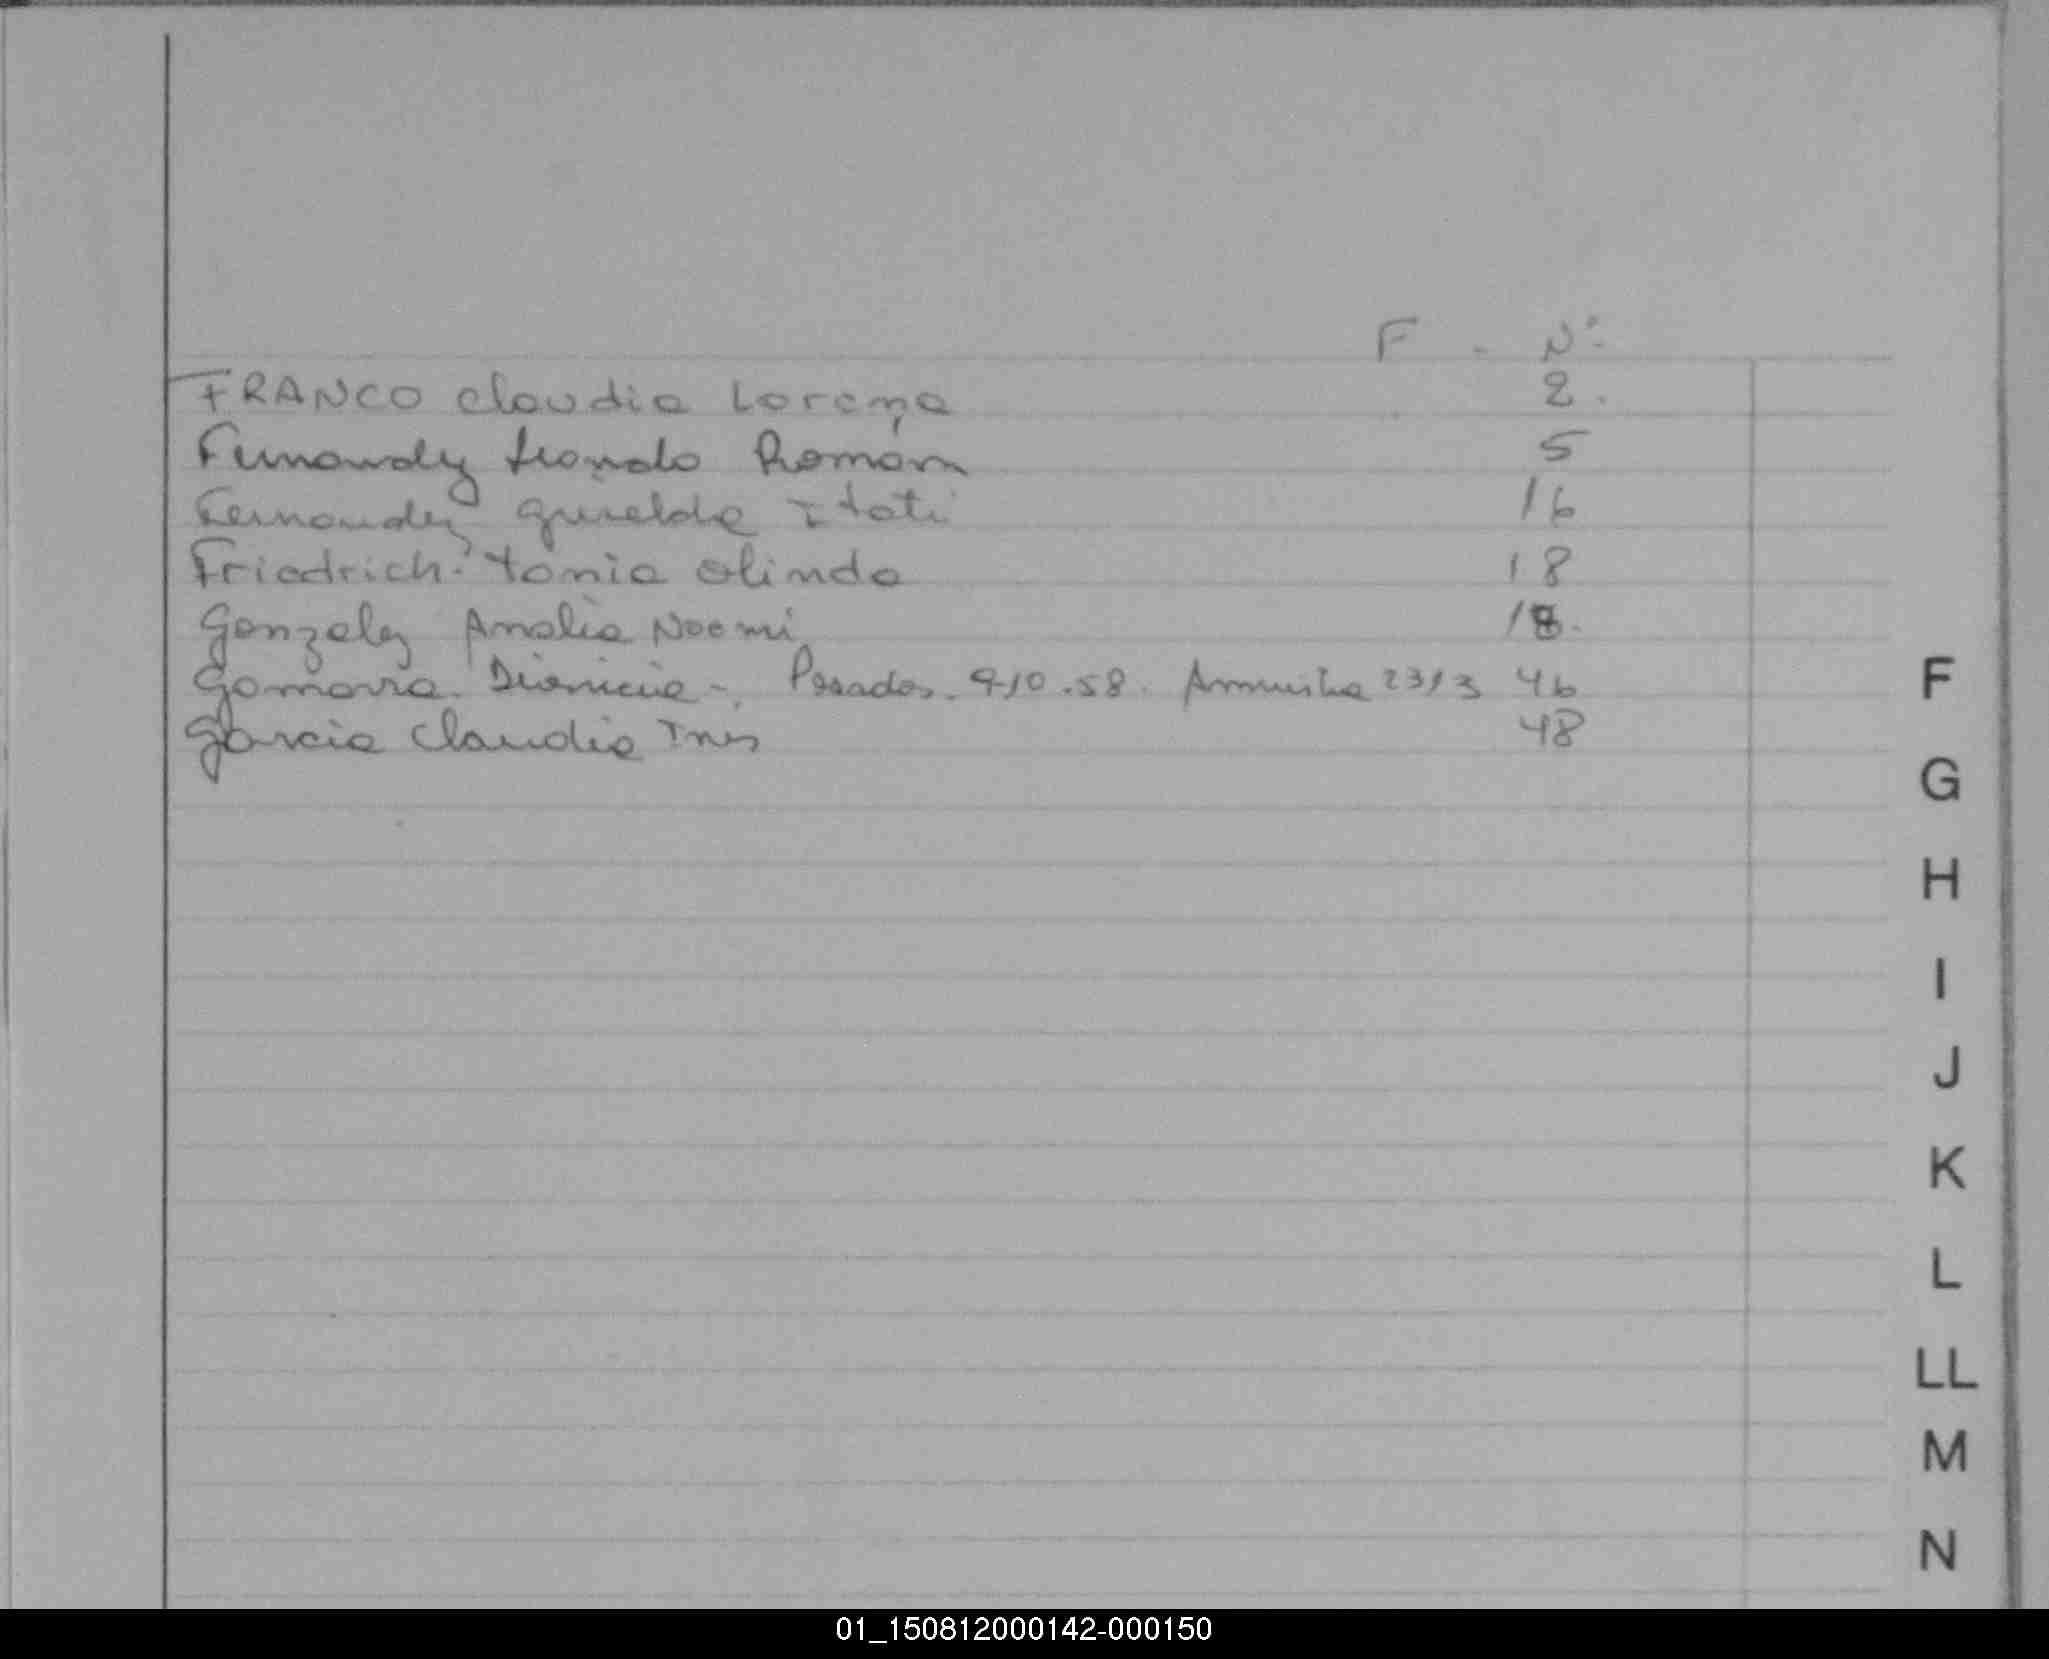 F - Nº
FRANCO Claudia Lorena 2.
Fernandez Román 5
Fernandez Griselda Itati 16
Friedrich Tonia Olinda 18
Gonzalez Analia Noemi 18.
Gamarra Dionicia - Posadas. 9/10.58. 2313 46
Garcia Claudia Ines 48
F
G
H
I
J
K
L
LL
M
N
01_150812000142-000150